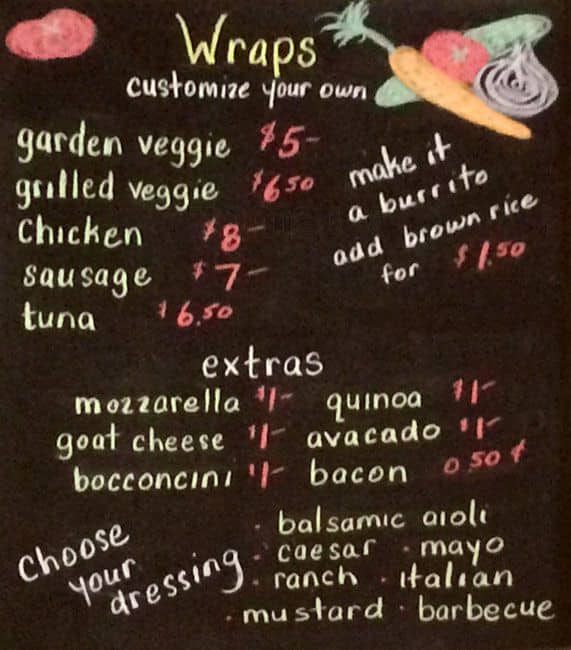 Wraps
customize your own
garden veggie $5-
grilled veggie $6.50
Chicken $8-
sausage $7-
tuna $6.50
make it
a burrito
add brown rice
for $1.50
extras
mozzarella $1- quinoa $1-
goat cheese $1- avacado $1-
bocconcini $1- bacon 0.50¢
choose
your
dressing
· balsamic aioli
· caesar · mayo
· ranch · italian
· mustard · barbecue